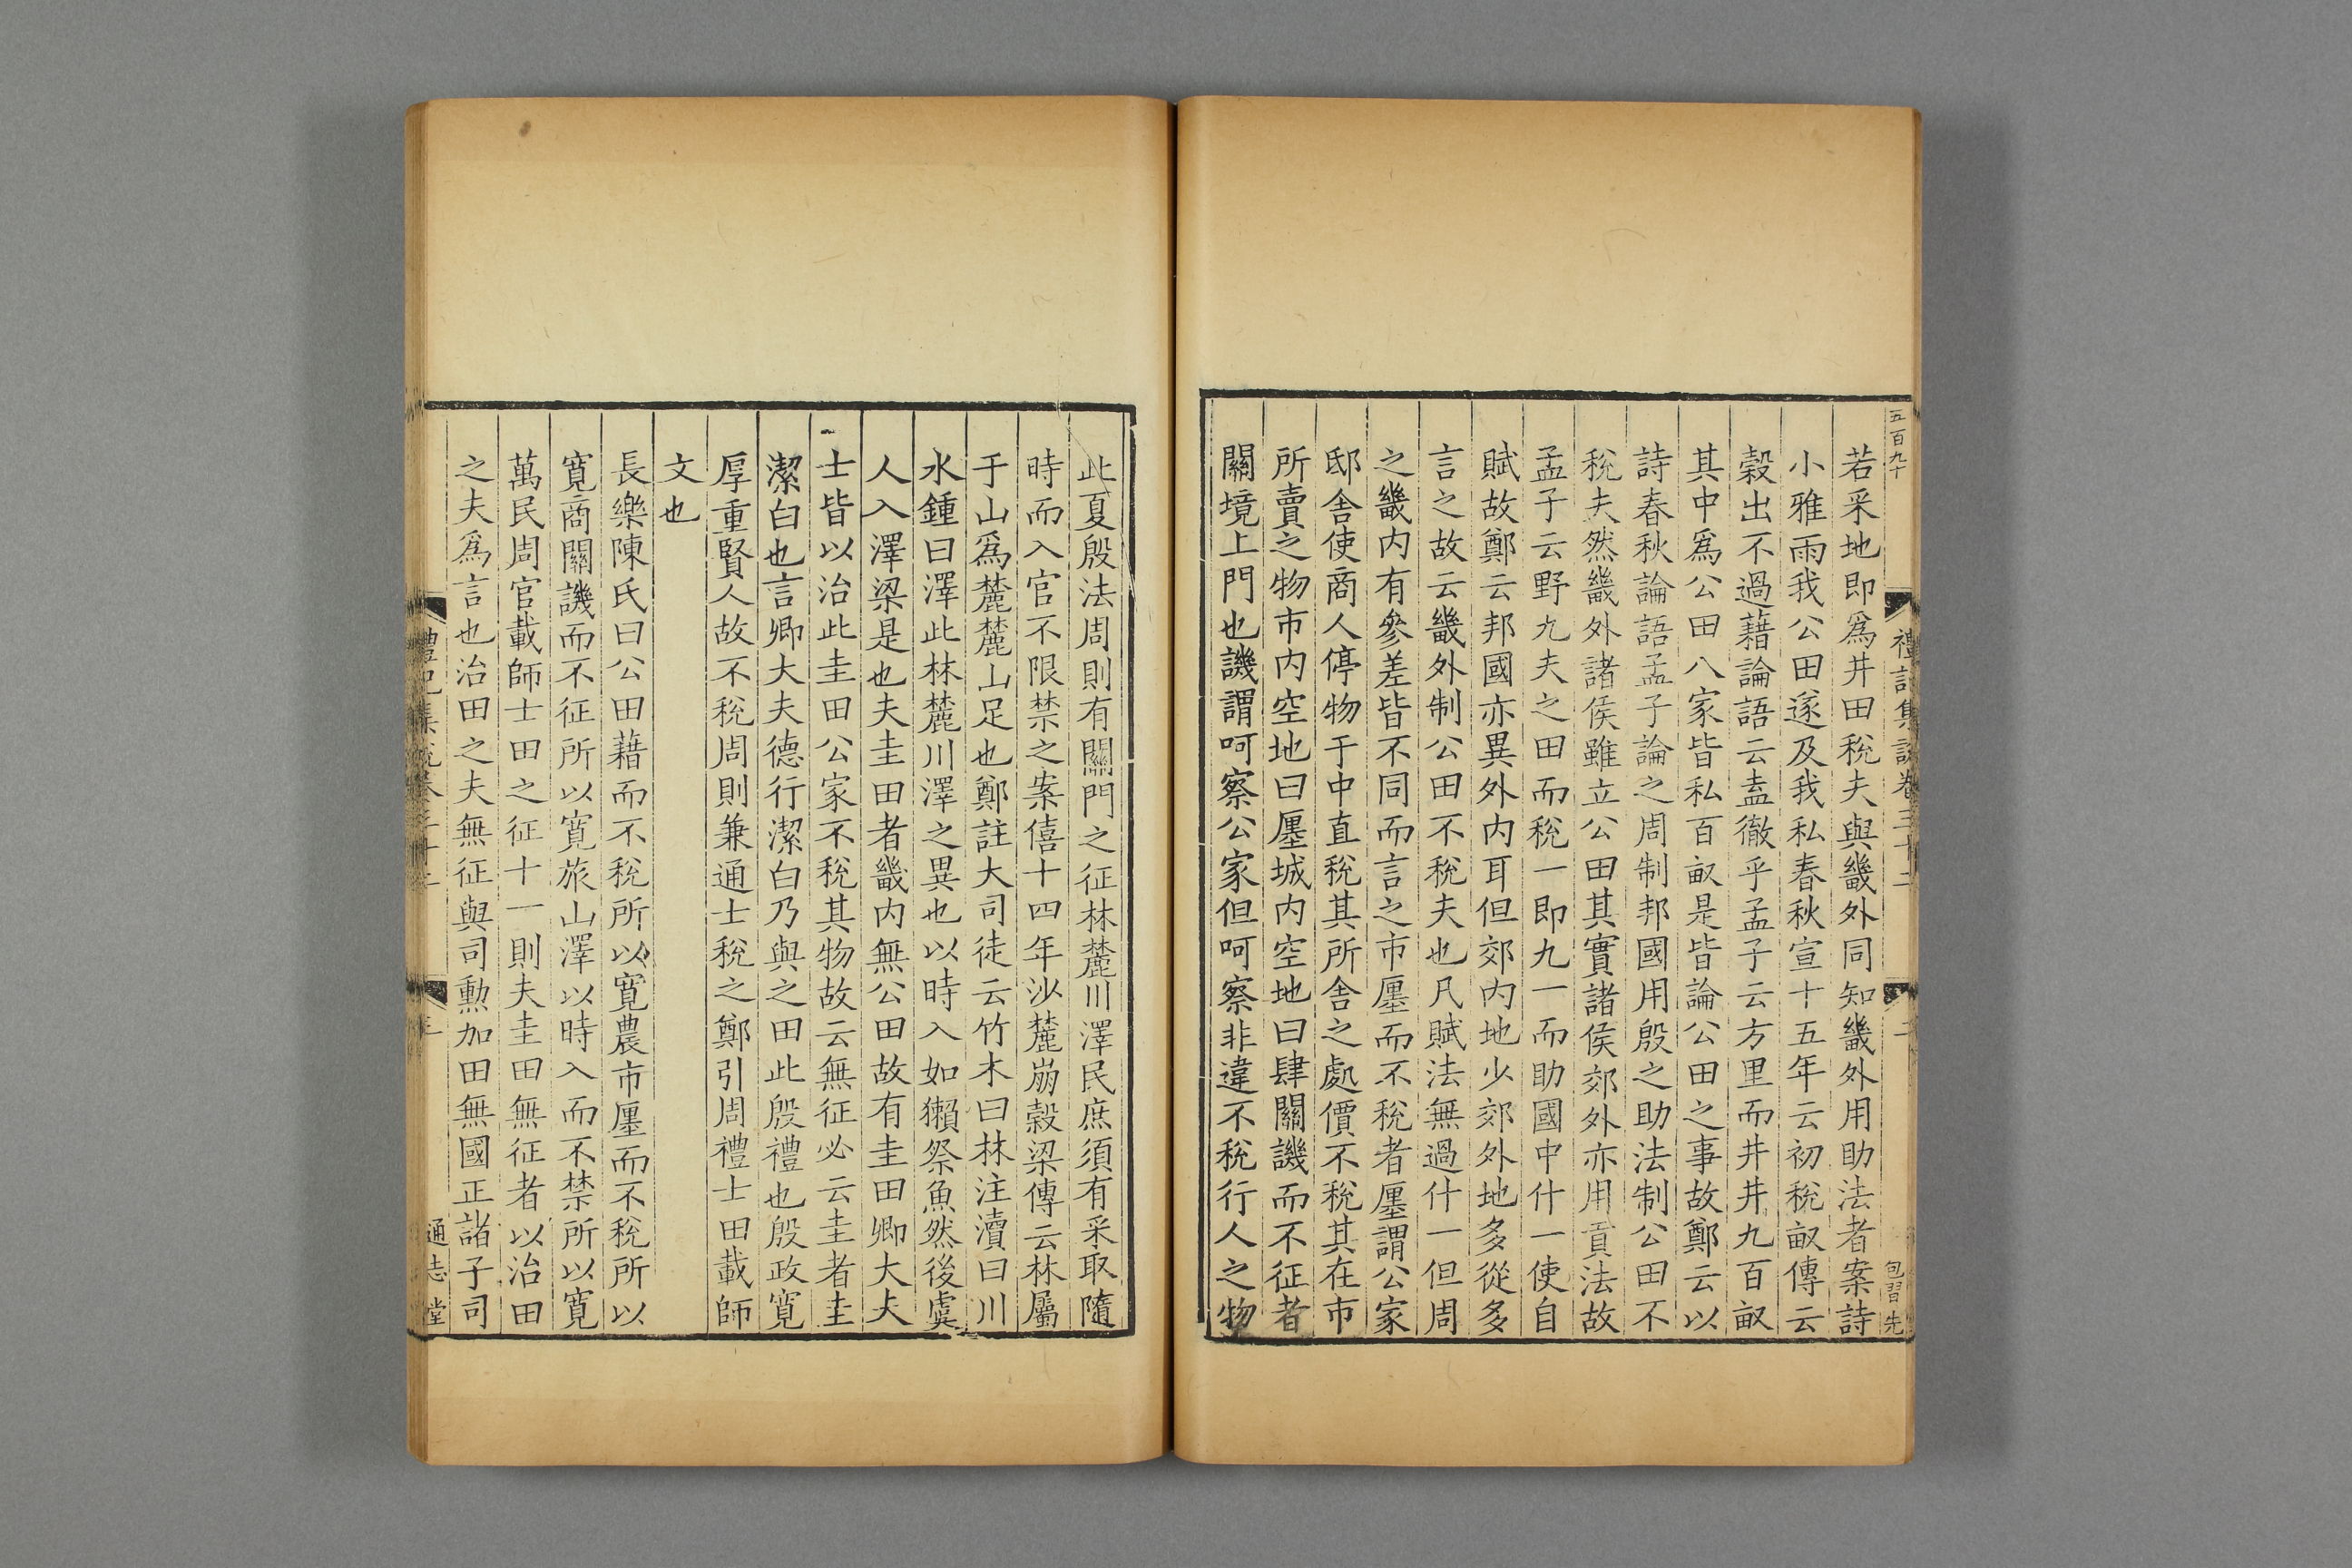 五百九十
禮記集說卷三十二
二
包習先
若采地即爲井田稅夫與畿外同知畿外用助法者案詩
小雅雨我公田遂及我私春秋宣十五年云初稅畝傳云
穀出不過藉論語云盍徹乎孟子云方里而井井九百畝
其中爲公田八家皆私百畝是皆論公田之事故鄭云以
詩春秋論語孟子論之周制邦國用殷之助法制公田不
稅夫然畿外諸侯雖立公田其實諸侯郊外亦用貢法故
孟子云野九夫之田而稅一即九一而助國中什一使自
賦故鄭云邦國亦異外内耳但郊内地少郊外地多從多
言之故云畿外制公田不稅夫也凡賦法無過什一但周
之畿内有參差皆不同而言之市廛而不稅者廛謂公家
邸舍使商人停物于中直稅其所舍之處價不稅其在市
所賣之物市内空地曰廛城内空地曰肆關譏而不征者
關境上門也譏謂呵察公家但呵察非違不稅行人之物
此夏殷法周則有關門之征林麓川澤民庶須有采取隨
時而入官不限禁之案僖十四年沙麓崩穀梁傳云林屬
于山爲麓麓山足也鄭註大司徒云竹木曰林注瀆曰川
水鍾曰澤此林麓川澤之異也以時入如獺祭魚然後虞
人入澤梁是也夫圭田者畿内無公田故有圭田卿大夫
士皆以治此圭田公家不稅其物故云無征必云圭者圭
潔白也言卿大夫德行潔白乃與之田此殷禮也殷政寬
厚重賢人故不稅周則兼通士稅之鄭引周禮士田載師
文也
長樂陳氏曰公田藉而不稅所以寬農市廛而不稅所以
寬商關譏而不征所以寬旅山澤以時入而不禁所以寬
萬民周官載師士田之征十一則夫圭田無征者以治田
之夫爲言也治田之夫無征與司勲加田無國正諸子司
禮記集說卷三十二
三
通志堂